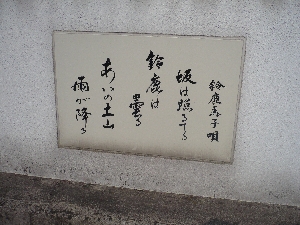 鈴鹿馬子唄
坂は照る〳〵
鈴鹿は
曇る
あいの土山
雨が降る